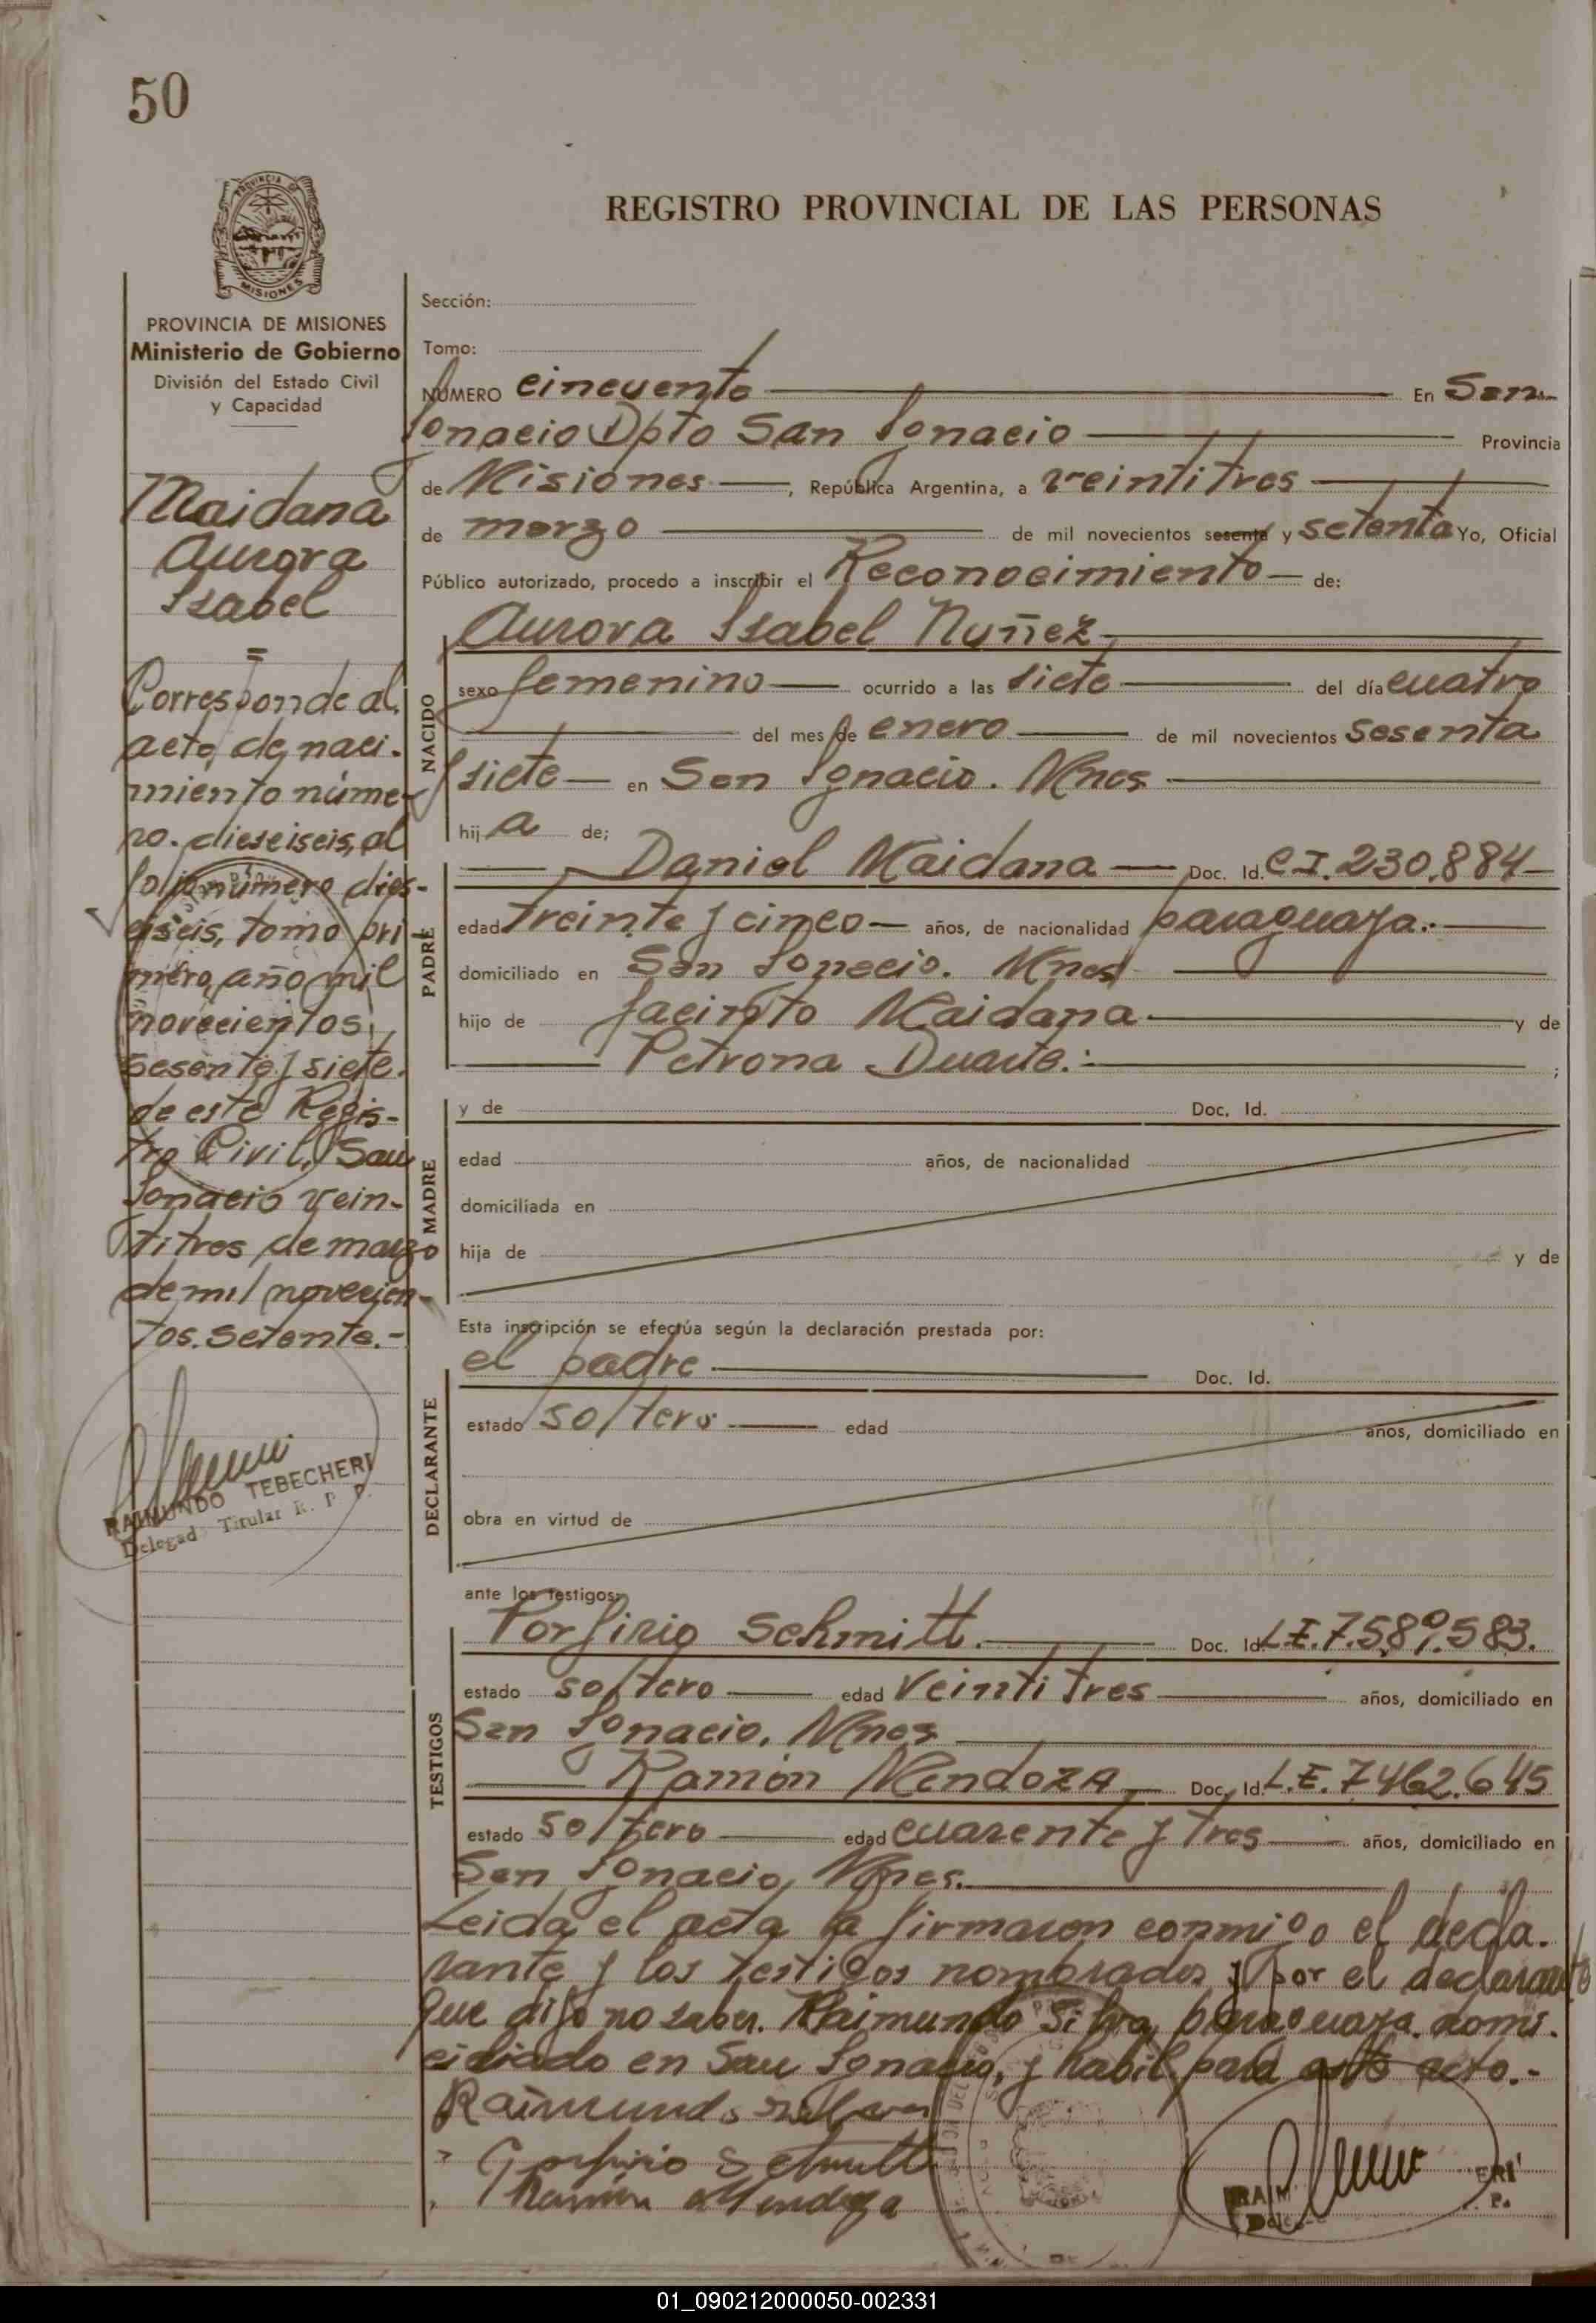 50
PROVINCIA DE
MISIONES
REGISTRO PROVINCIAL DE LAS PERSONAS
PROVINCIA DE MISIONES
Ministerio de Gobierno
División del Estado Civil
y Capacidad
Maidana
Aurora
Isabel
=
Corresponde al
acta de naci-
miento núme-
ro. dieseiseis, al
folio número dies-
eiseis, tomo pri-
mero, año mil
novecientos
sesenta y siete.
de este Regis-
tro Civil, San
Ignacio vein-
titres de marzo
de mil novecien-
tos. setenta.-
RAIMUNDO TEBECHERI
Delegad Titular R. P. P.
Sección:
Tomo:
NÚMERO cincuenta En San
Ignacio Dpto San Ignacio Provincia
de Misiones, República Argentina, a veintitres
de marzo de mil novecientos sesenta y setenta Yo, Oficial
Público autorizado, procedo a inscribir el Reconocimiento de:
NACIDO
Aurora Isabel Nuñez
sexo femenino ocurrido a las siete del día cuatro
del mes de enero de mil novecientos sesenta
y siete en San Ignacio. Mnes
hij a de;
PADRE
Daniel Maidana Doc. Id. C.I. 230.884
edad treinta y cinco años, de nacionalidad paraguaya.
domiciliado en San Ignacio. Mnes
hijo de Jacinto Maidana y de
Petrona Duarte. ;
MADRE
y de Doc. Id.
edad años, de nacionalidad
domiciliada en
hija de y de
Esta inscripción se efectúa según la declaración prestada por:
DECLARANTE
el padre Doc. Id.
estado soltero edad años, domiciliado en
obra en virtud de
ante los testigos:
TESTIGOS
Porfirio Schmitt. Doc. Id. L.E. 7.589.583.
estado soltero edad veintitres años, domiciliado en
San Ignacio. Mnes
Ramón Mendoza Doc. Id. L.E. 7462.645
estado soltero edad cuarenta y tres años, domiciliado en
San Ignacio, Mnes.
Leida el acta la firmaron conmigo el decla-
rante y los testigos nombrados y por el declarante
que dijo no saber. Raimundo Silva, paraguaya. domi-
ciliado en San Ignacio, y habil para este acto.-
Raimundo Silva
Porfirio Schmitt
Ramón Mendoza
01_090212000050-002331